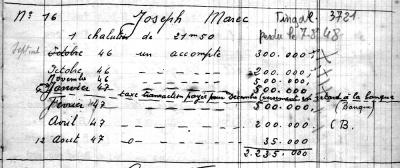 N° 16 Joseph Marec Tingal. 3721
1 chalutier de 21m50 perdu le 7-3-48
Septembre
Octobre 46 un accompte 300.000,
Octobre 46 -"- -"- 200.000,
Novembre 46 -"- -"- 500.000,
Janvier 47 -"- -"- 500.000
taxe transaction payée pour second versement en retard à la banque
Février 47 -"- -"- 500.000, (Banque)
Avril 47 -"- -"- 200.000, (B.
12 Aout 47 -"- -"- 35.000
2.235.000